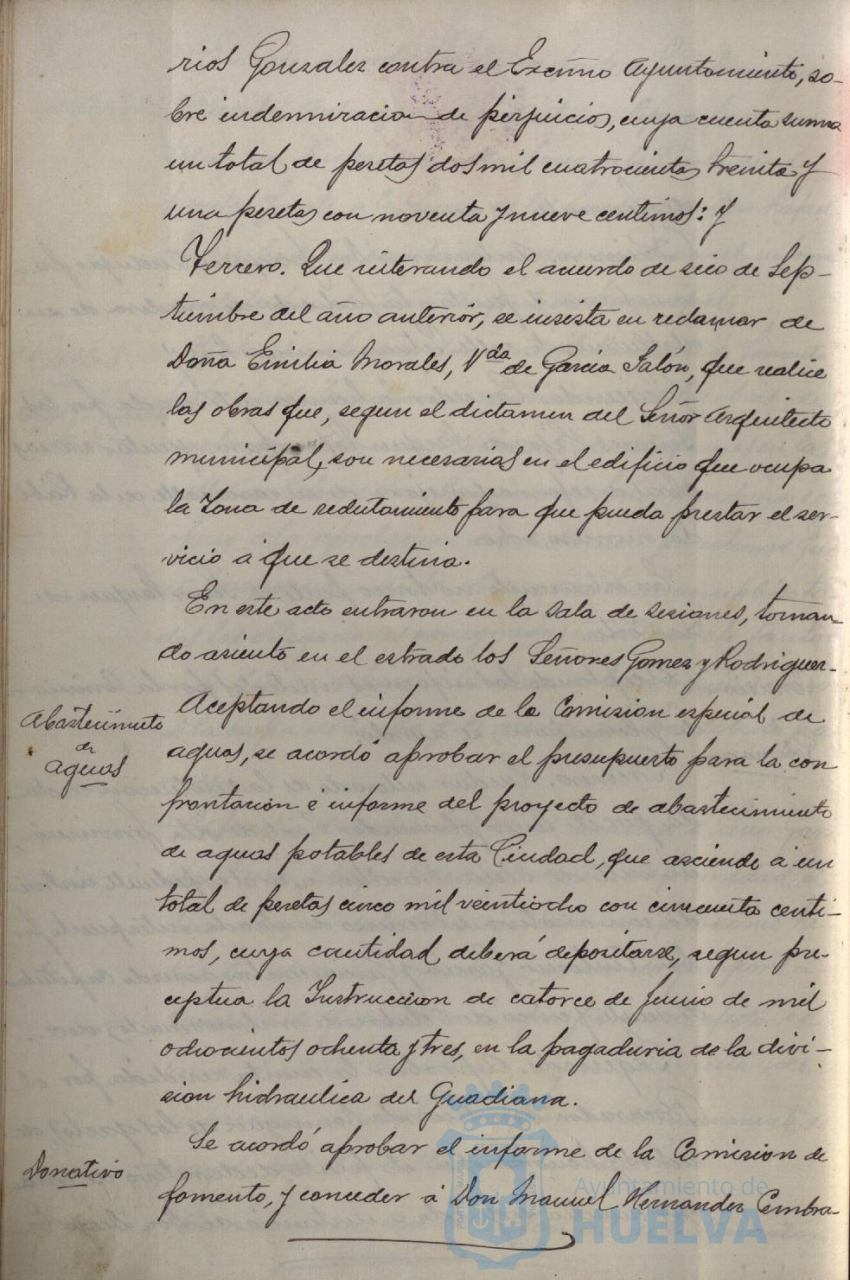 rios Gonzalez contra el Excmo Ayuntamiento, so-
bre indemnizacion de perjuicios, cuya cuenta suma
un total de pesetas dos mil cuatrocientas treinta y
una pesetas con noventa y nueve centimos: Y
Tercero. Que reiterando el acuerdo de seis de Sep-
tiembre del año anterior, se insista en reclamar de
Doña Emilia Morales, Vda de Garcia Jalón, que realice
las obras que, segun el dictamen del Señor Arquitecto
municipal, son necesarias en el edificio que ocupa
la Zona de reclutamiento para que pueda prestar el ser-
vicio á que se destina.
En este acto entraron en la sala de sesiones, toman-
do asiento en el estrado los Señores Gomez y Rodriguez.
Abastecimiento
de
aguas
Aceptando el informe de la Comision especial de
aguas, se acordó aprobar el presupuesto para la con
frontacion é informe del proyecto de abastecimiento
de aguas potables de esta Ciudad, que asciende á un
total de pesetas cinco mil veintiocho con cincuenta centi-
mos, cuya cantidad deberá depositarse, segun pre-
ceptua la Instruccion de catorce de Junio de mil
ochocientos ochenta y tres, en la pagaduria de la divi-
sion hidraulica del Guadiana.
Donativo
Se acordó aprobar el informe de la Comision de
fomento, y conceder á Don Manuel Hernandez Cembra-
Ayuntamiento de
HUELVA